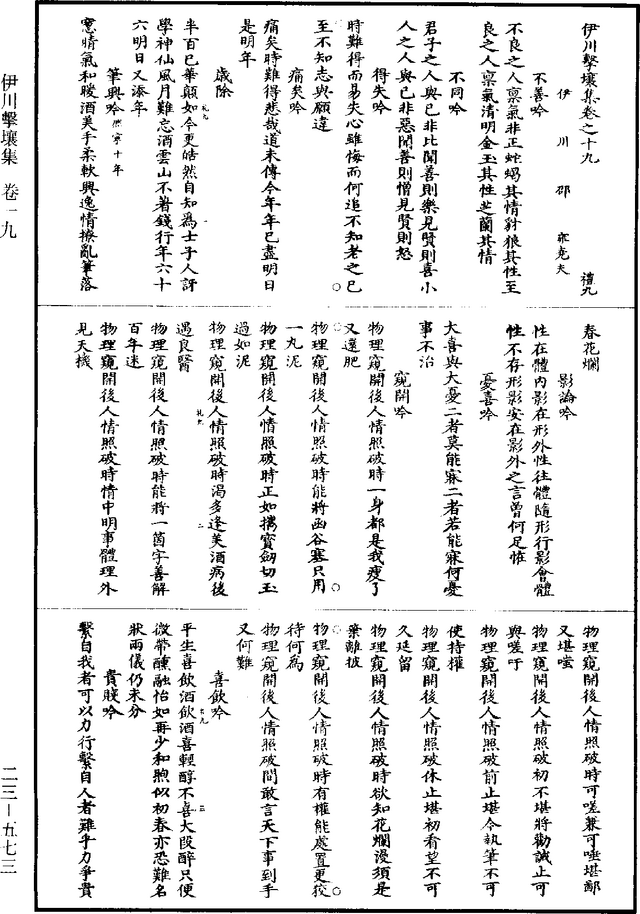 伊川擊壤集卷之十九
禮九
伊川邵雍堯夫
不善吟
不良之人稟氣非正蛇蝎其情豺狼其性至
良之人稟氣清明金玉其性芝蘭其情
不同吟
君子之人與己非比聞善則樂見賢則喜小
人之人與己非惡聞善則憎見賢則怒
得失吟
時難得而易失心雖悔而何追不知老之已
至不知志與願違
痛矣吟
痛矣時難得悲哉道未傳今年年已盡明日
是明年
歲除
半百已華顛如今更皓然自知為士子人訝
學神仙風月難忘酒雲山不著錢行年六十
六明日又添年
筆興吟熙寧十年
窻晴氣和暖酒美手柔軟興逸情撩亂筆落
春花爛
影論吟
性在體內影在形外性往體隨形行影會體
性不存形影安在影外之言曾何足恠
憂喜吟
大喜與大憂二者莫能寐二者若能寐何憂
事不治
窺開吟
物理窺開後人情照破時一身都是我瘦了
又還肥
物理窺開後人情照破時能將函谷塞只用
一丸泥
物理窺開後人情照破時正如擕寳劒切玉
過如泥
物理窺開後人情照破時渴多逢美酒病後
遇良醫
物理窺開後人情照破時能將一箇字善解
百年迷
物理窺開後人情照破時情中明事體理外
見天機
物理窺開後人情照破時可嗟兼可唾堪鄙
又堪嗤
物理窺開後人情照破初不堪將勸誡止可
與嗟吁
物理窺開後人情照破前止堪令執筆不可
使持權
物理窺開後人情照破休止堪初看望不可
久延留
物理窺開後人情照破時欲知花爛漫須是
葉離披
物理窺開後人情照破時有權能處置更狡
待何為
物理窺開後人情照破間敢言天下事到手
又何難
喜飲吟
平生喜飲酒飲酒喜輕醇不喜大段醉只便
微帶醺融怡如再少和煦似初春亦恐難名
狀兩儀仍未分
貴賤吟
繫自我者可以力行繫自人者難乎力爭貴
伊川擊壤集 卷一九
二三—五七三